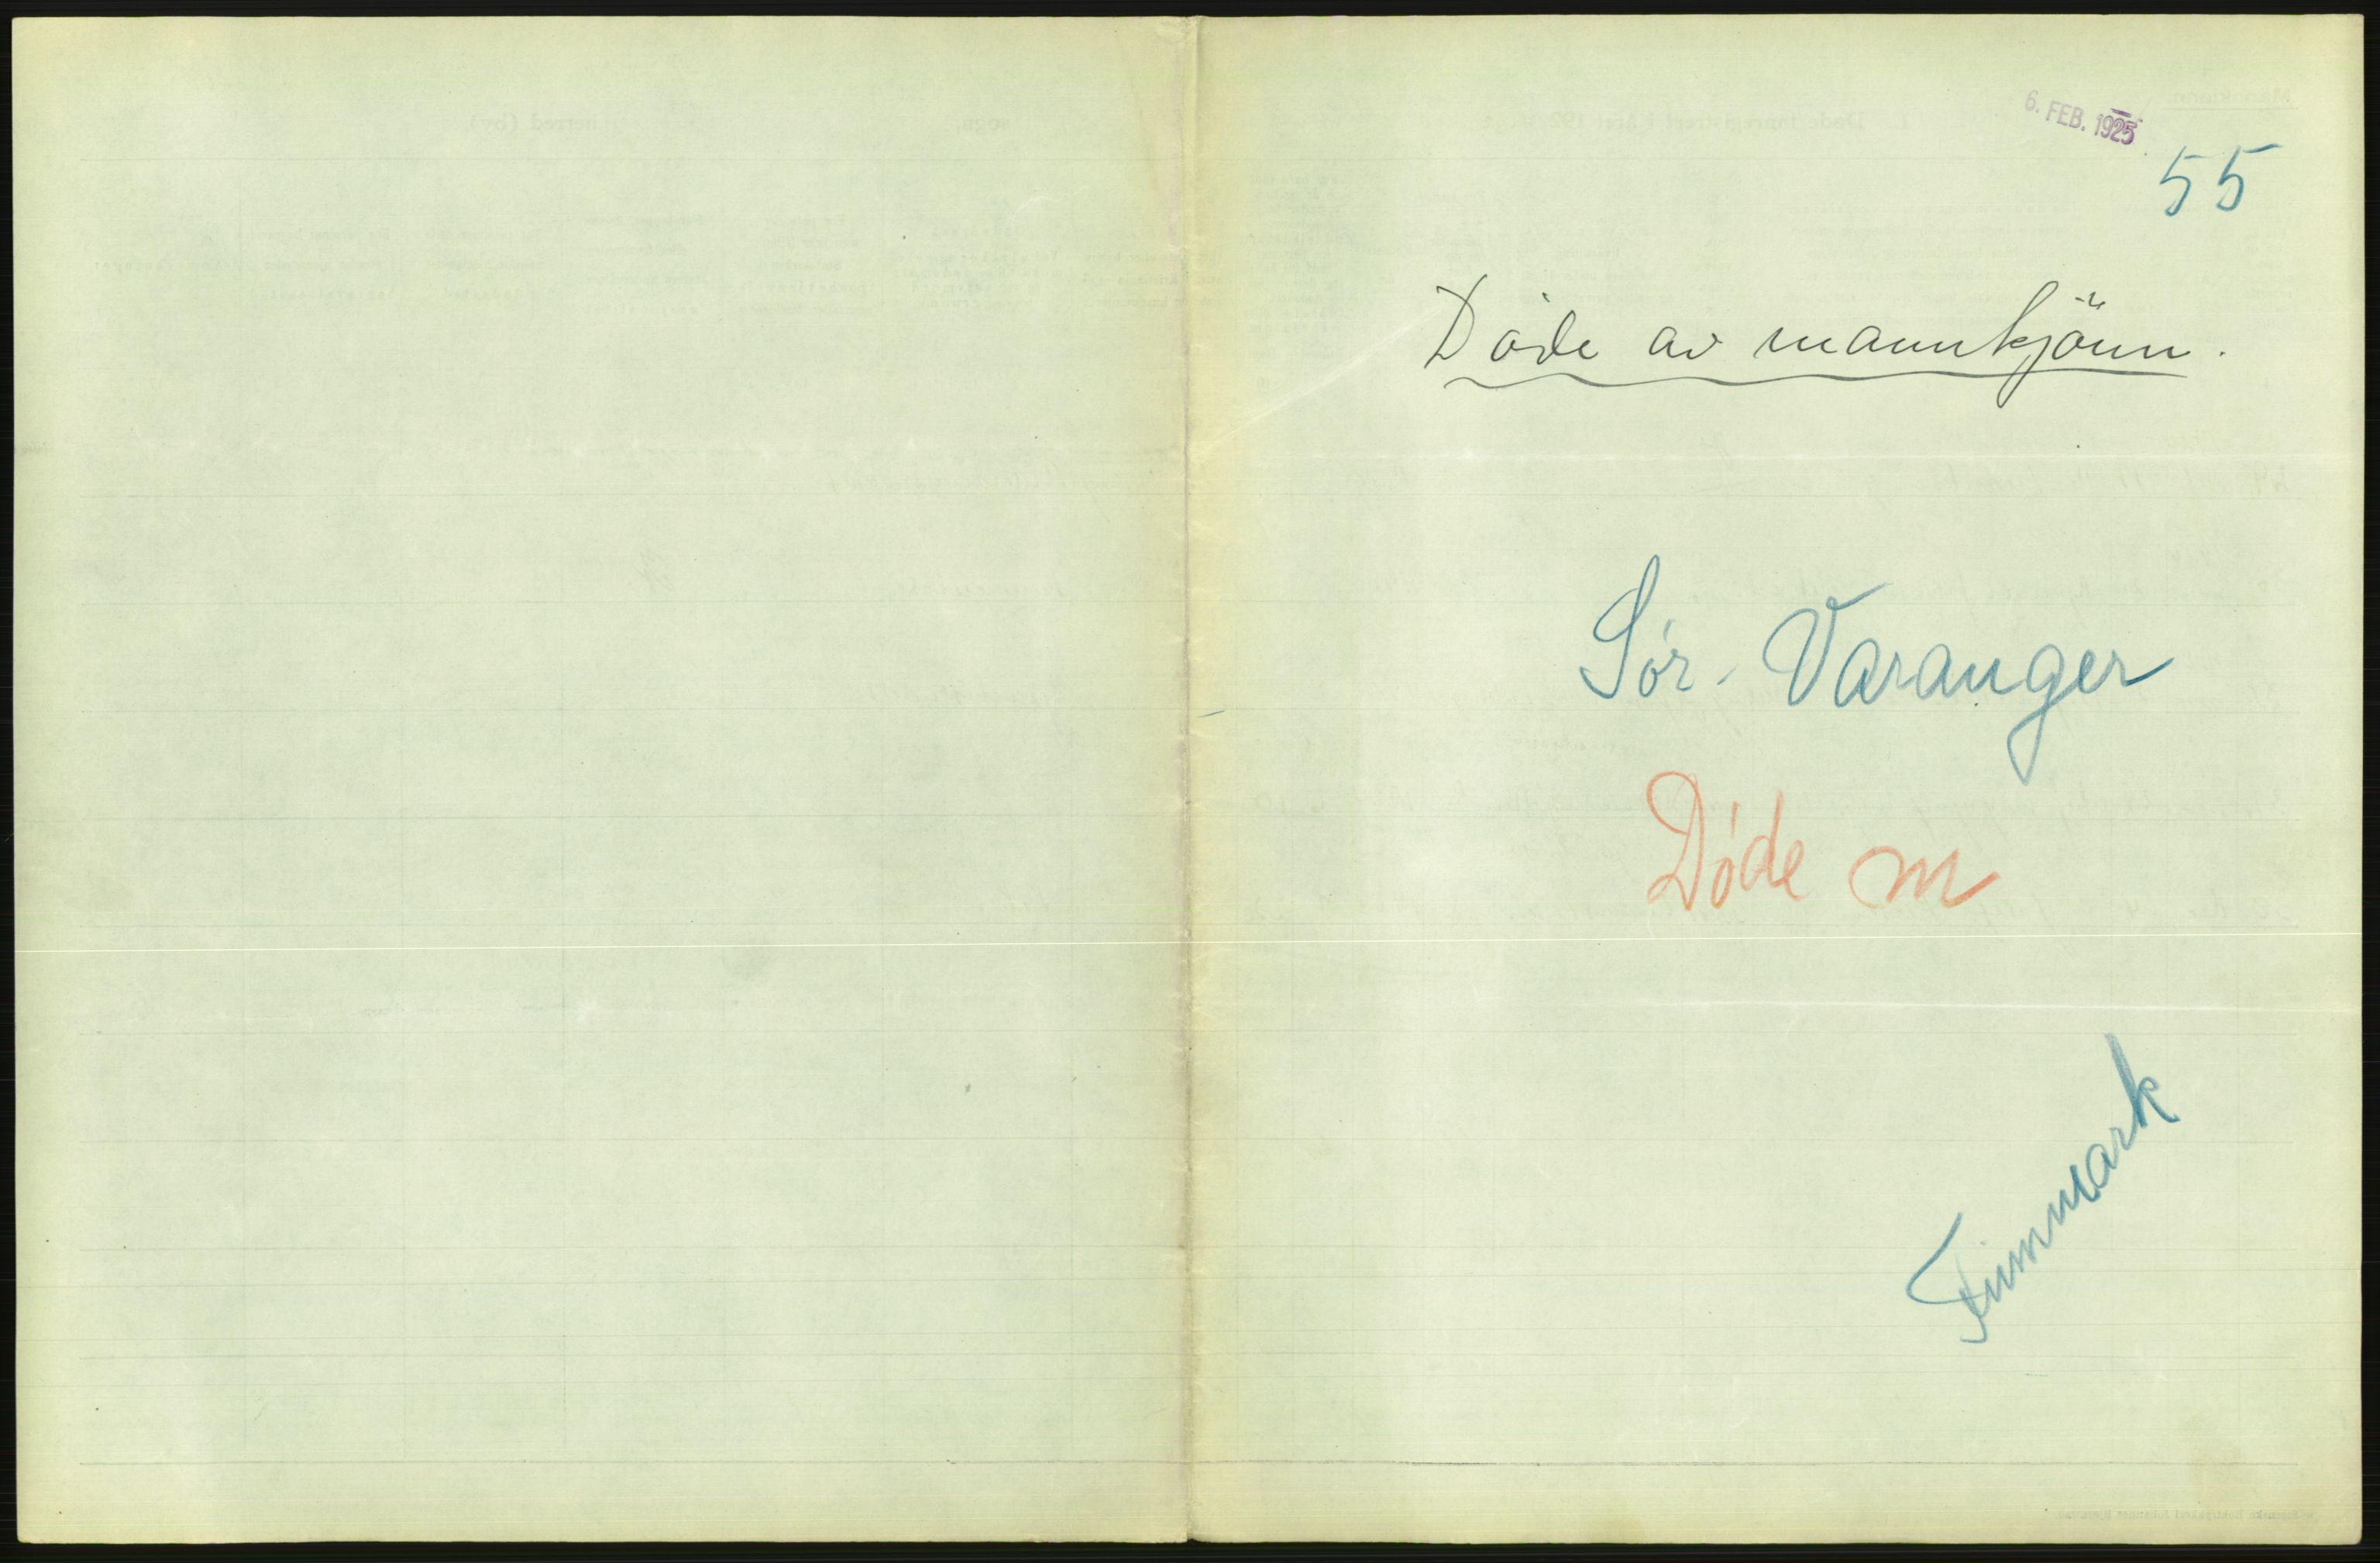 6. FEB. 1925
55
Døde av mannkjönn.
Sør-Varanger
Døde m
Finnmark